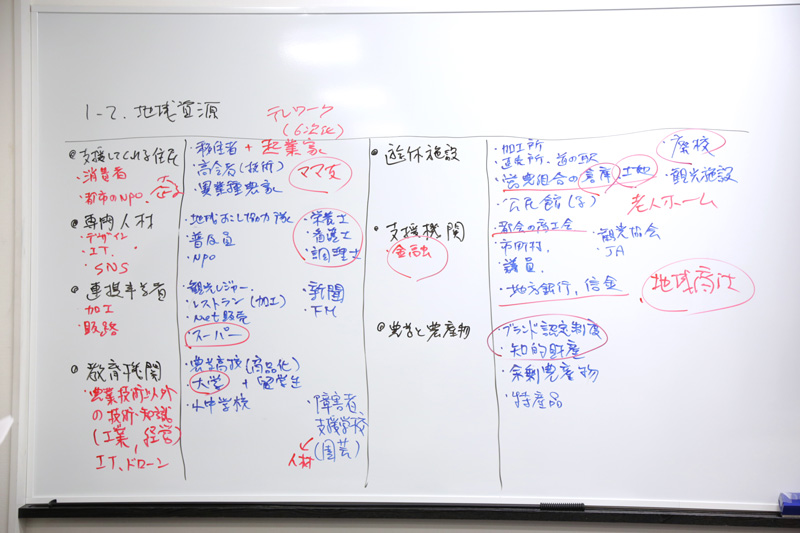 1-2. 地域資源
テレワーク
(6次化)
◎支援してくれる住民
・消費者
・都市のNPO.
・移住者 + 起業家
・高令者(技術)
・異業種農家
ママ友
◎専門人材
・デザイン
・IT.
・SNS
・地域おこし協力隊
・普及員
・NPO
・栄養士
・調理士
◎連携事業者
加工
・販路
・観光レジャー
・レストラン(加工)
・Net販売
・スーパー
・新聞
・FM
◎教育機関
・農業技術以外
の技術・知識
(工業, 経営)
IT、ドローン
・農業高校(商品化)
・大学 + 留学生
・小中学校
・障害者、
支援学校
(園芸)
人材
◎遊休施設
・加工所
・直売所・道の駅
・営農組合の倉庫・土地
・公民館
・廃校
・観光施設
老人ホーム
◎支援機関
・金融
・都会の商工会
・市町村,
・議員.
・地方銀行, 信金
・観光協会
・JA
地域商社
◎農営と農産物
・ブランド認定制度
・知的財産
・余剰農産物
・特産品